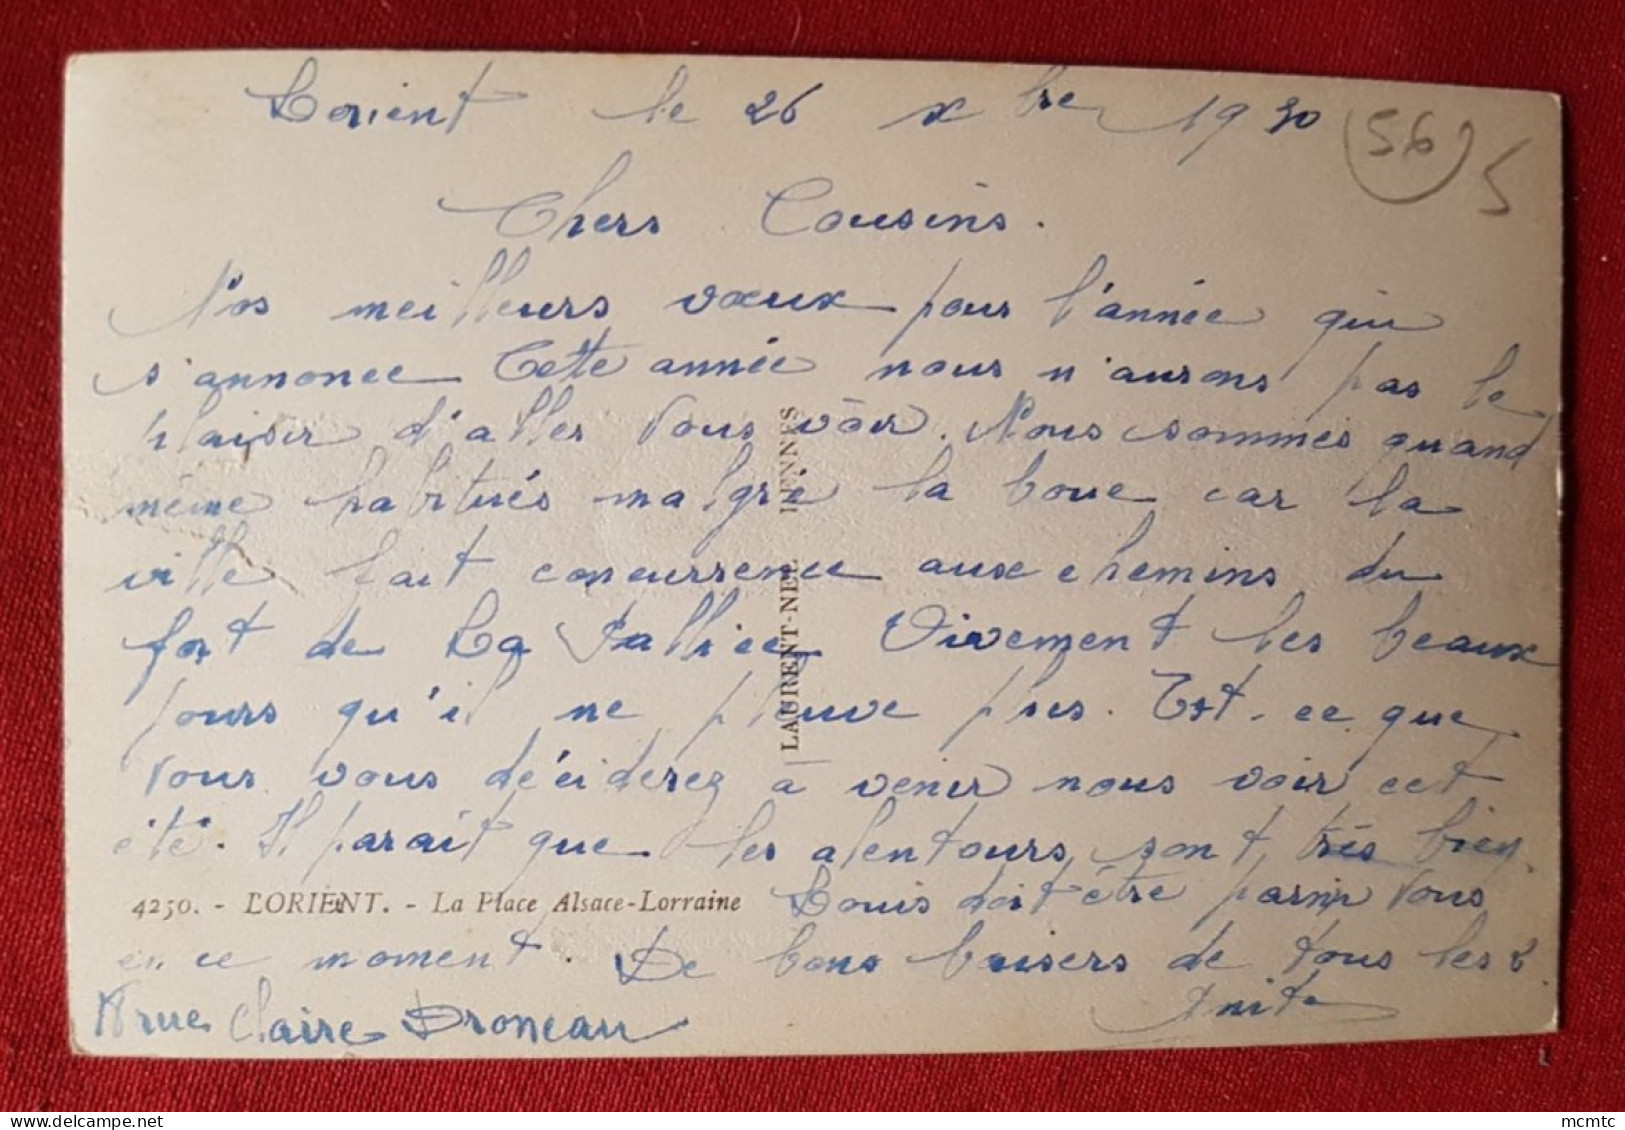 Lorient le 26 xbre 1930
(56) 5
Chers Cousins.
Nos meilleurs vœux pour l'année qui
s'annonce Cette année nous n'aurons pas le
plaisir d'aller vous voir. Nous sommes quand
même habitués malgré la boue car la
ville fait concurrence aux chemins du
fort de La Pallice Vivement les beaux
jours qu'il ne pleuve plus. Est-ce que
vous vous déciderez à venir nous voir cet
été. Il parait que les alentours sont très bien
Louis doit être parmi vous
en ce moment. De bons baisers de tous les 2
Anita
rue Claire Droneau
4250. - LORIENT. - La Place Alsace-Lorraine
LAURENT-NEL RENNES
mcmtc